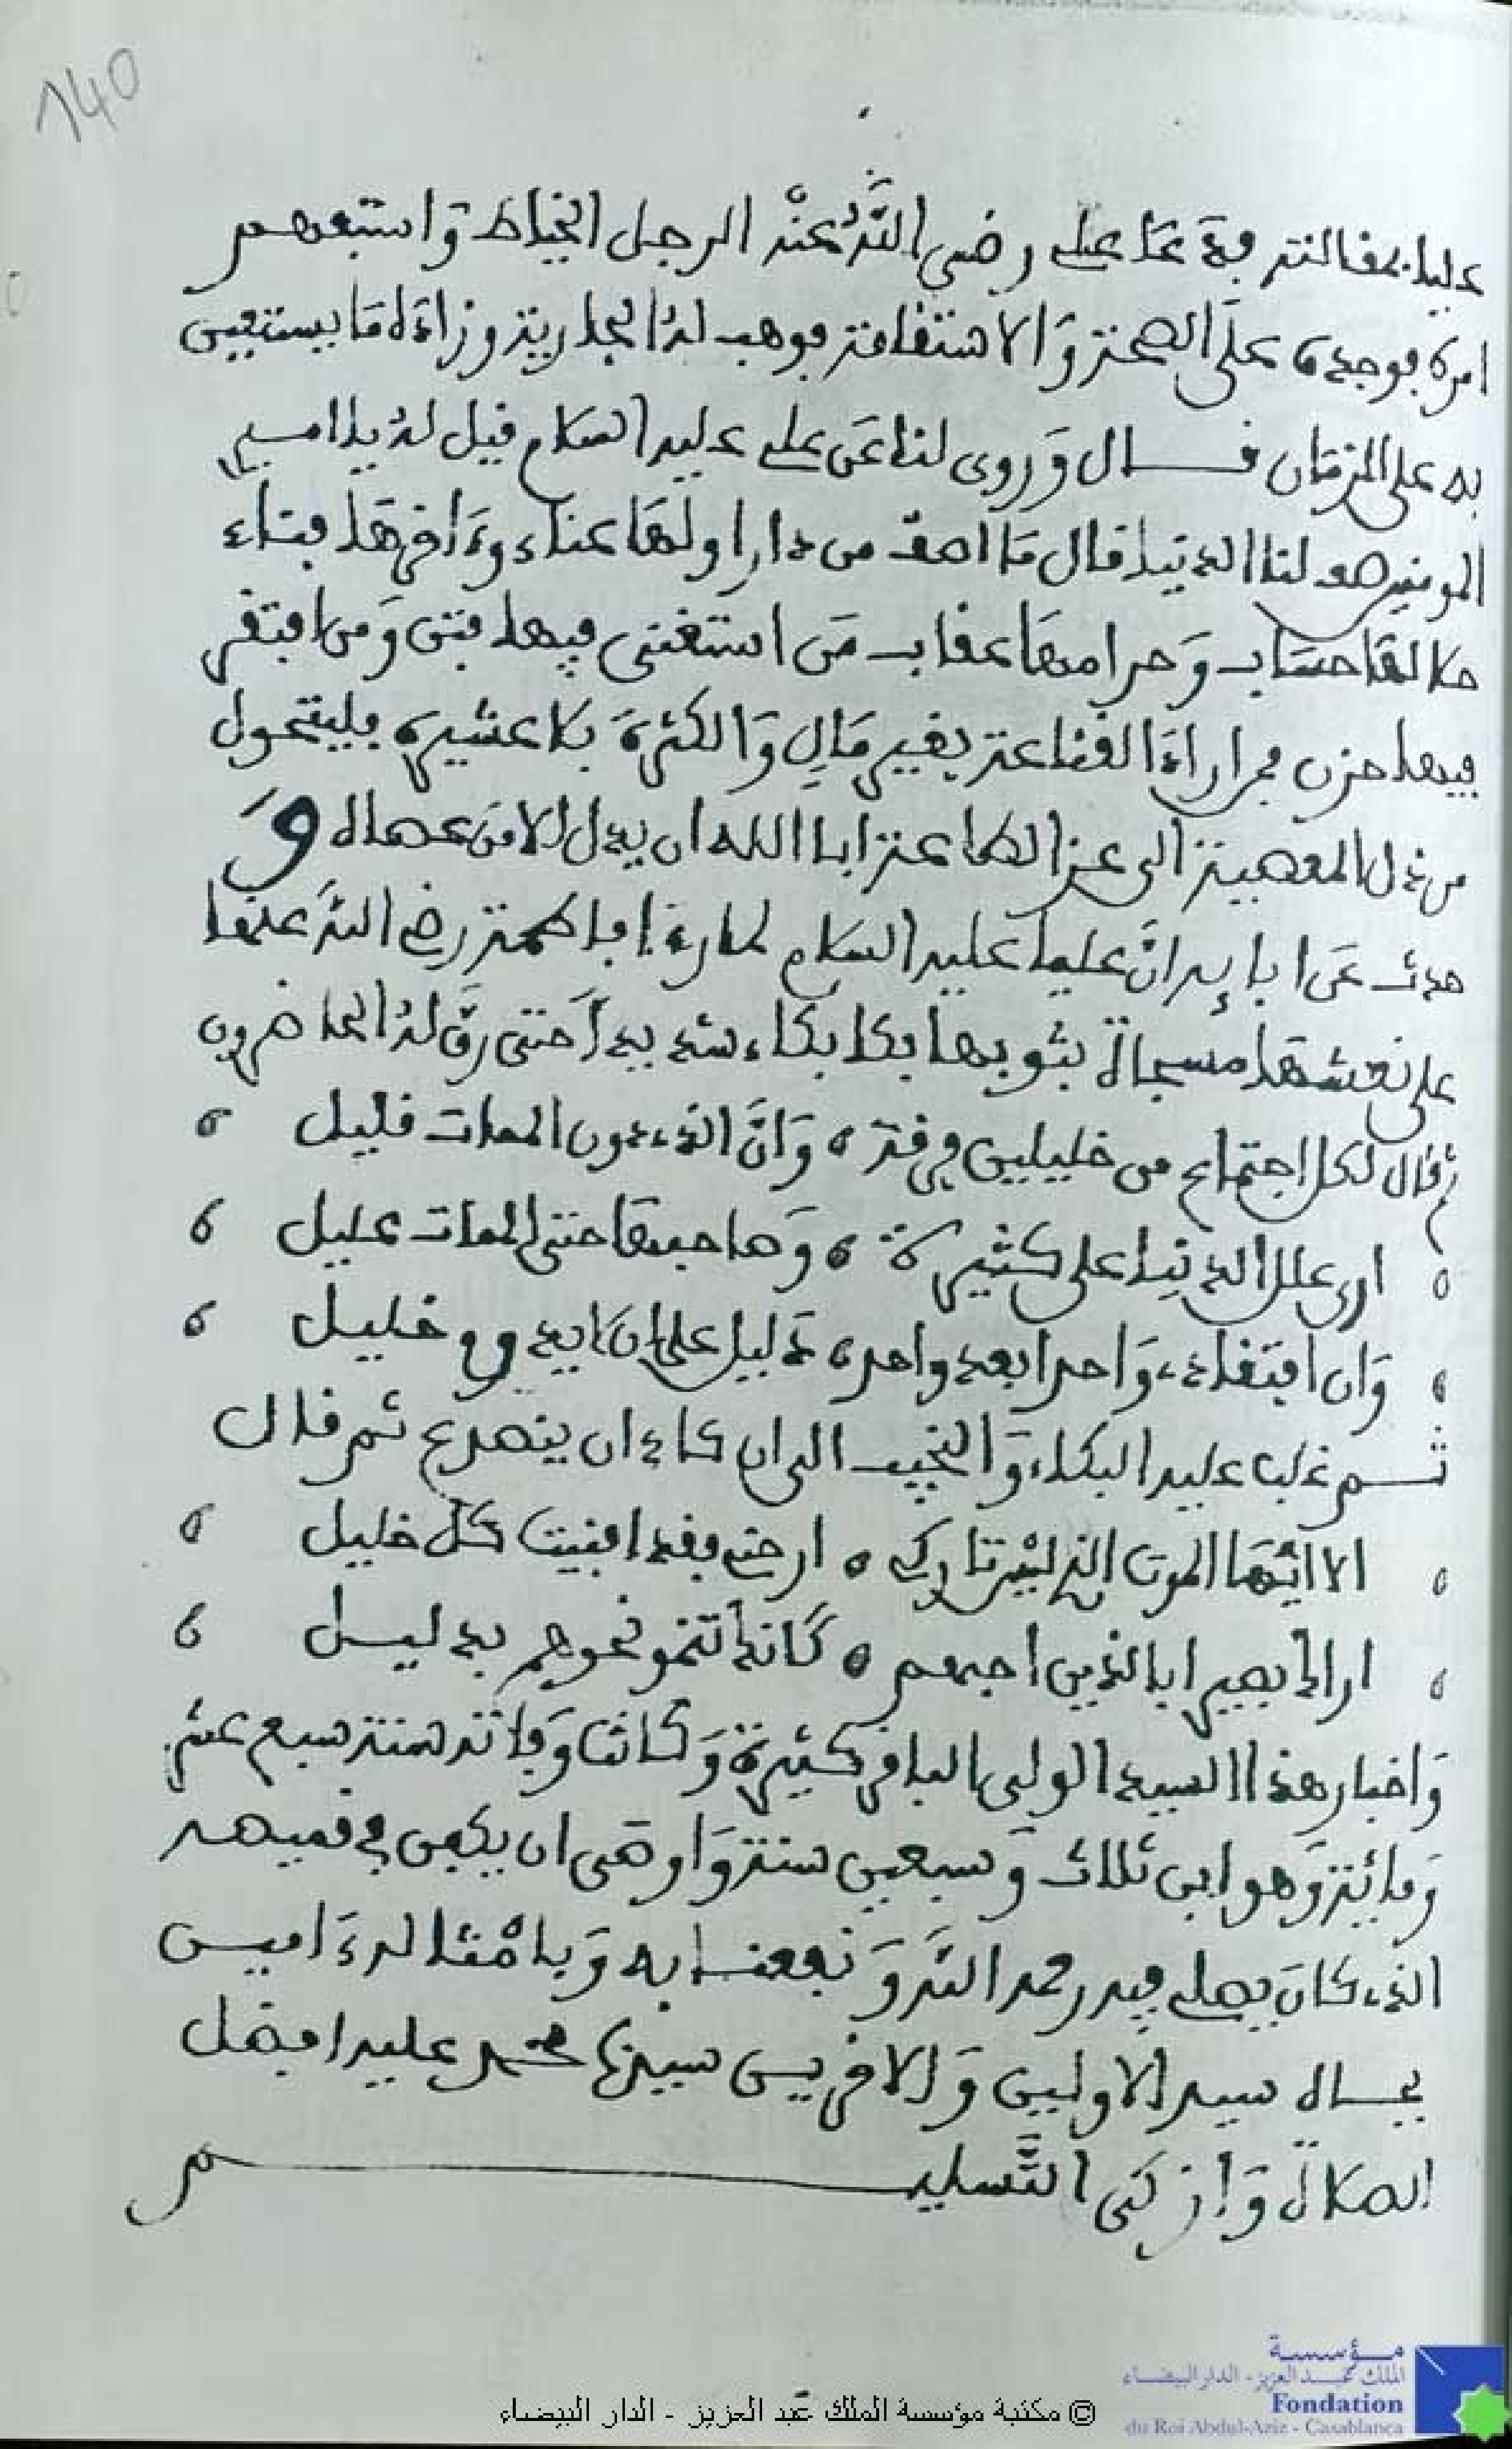 140
عليا بمقالته فدعا علي رضي الله عنه الرجل الخياط واستفهم
امره فوجده على الصحة والاستقامة فوهب له الجارية وزاده ما يستعين
به على الزمان قال وروي لنا عن علي عليه السلام قيل له يا امير
المومنين صف لنا الدنيا قال ما اصف من دار اولها عناء وءاخرها فناء
حلالها حساب وحرامها عقاب من استغنى فيها فتن ومن افتقر
فيها حزن فمن اراد القناعة بغير مال والكثرة بلا عشيرة فليتحول
من ذل المعصية الى عز الطاعة ابا الله ان يذل الا من عصاه و
حدث عن ابايه ان عليا عليه السلام لما رءا فاطمة رضي الله عنها
على نعشها مسجاة بثوبها بكا بكاء شديدا حتى رق له الحاضرون
ثم قال لكل اجتماع من خليلين فرقة ه وان الذي دون الممات قليل
ارى علل الدنيا علي كثيرة ه وصاحبها حتى الممات عليل
وان افتقادي واحدا بعد واحد ه دليل على ان لا يدوم خليل
ثم غلب عليه البكاء والنحيب الى ان كاد ان ينصدع ثم قال
الا ايها الموت الذي ليس تاركي ه ارحني فقد افنيت كل خليل
اراك بصيرا بالذين احبهم ه كانك تنحو نحوهم بدليل
واخبار هذا السيد الولي الباقر كثيرة وكانت وفاته سنة سبع عشر
ومائة وهو ابن ثلاث وسبعين سنة واوصى ان يكفن في قميصه
الذي كان يصلي فيه رحمه الله ونفعنا به وبامثاله ءاميـن
بجاه سيد الاولين والاخرين سيدنا محمد عليه افضل
الصلاة وأزكى التسليـم
مؤسسة
الملك عبد العزيز - الدار البيضاء
Fondation
du Roi Abdul-Aziz - Casablanca
© مكتبة مؤسسة الملك عبد العزيز - الدار البيضاء